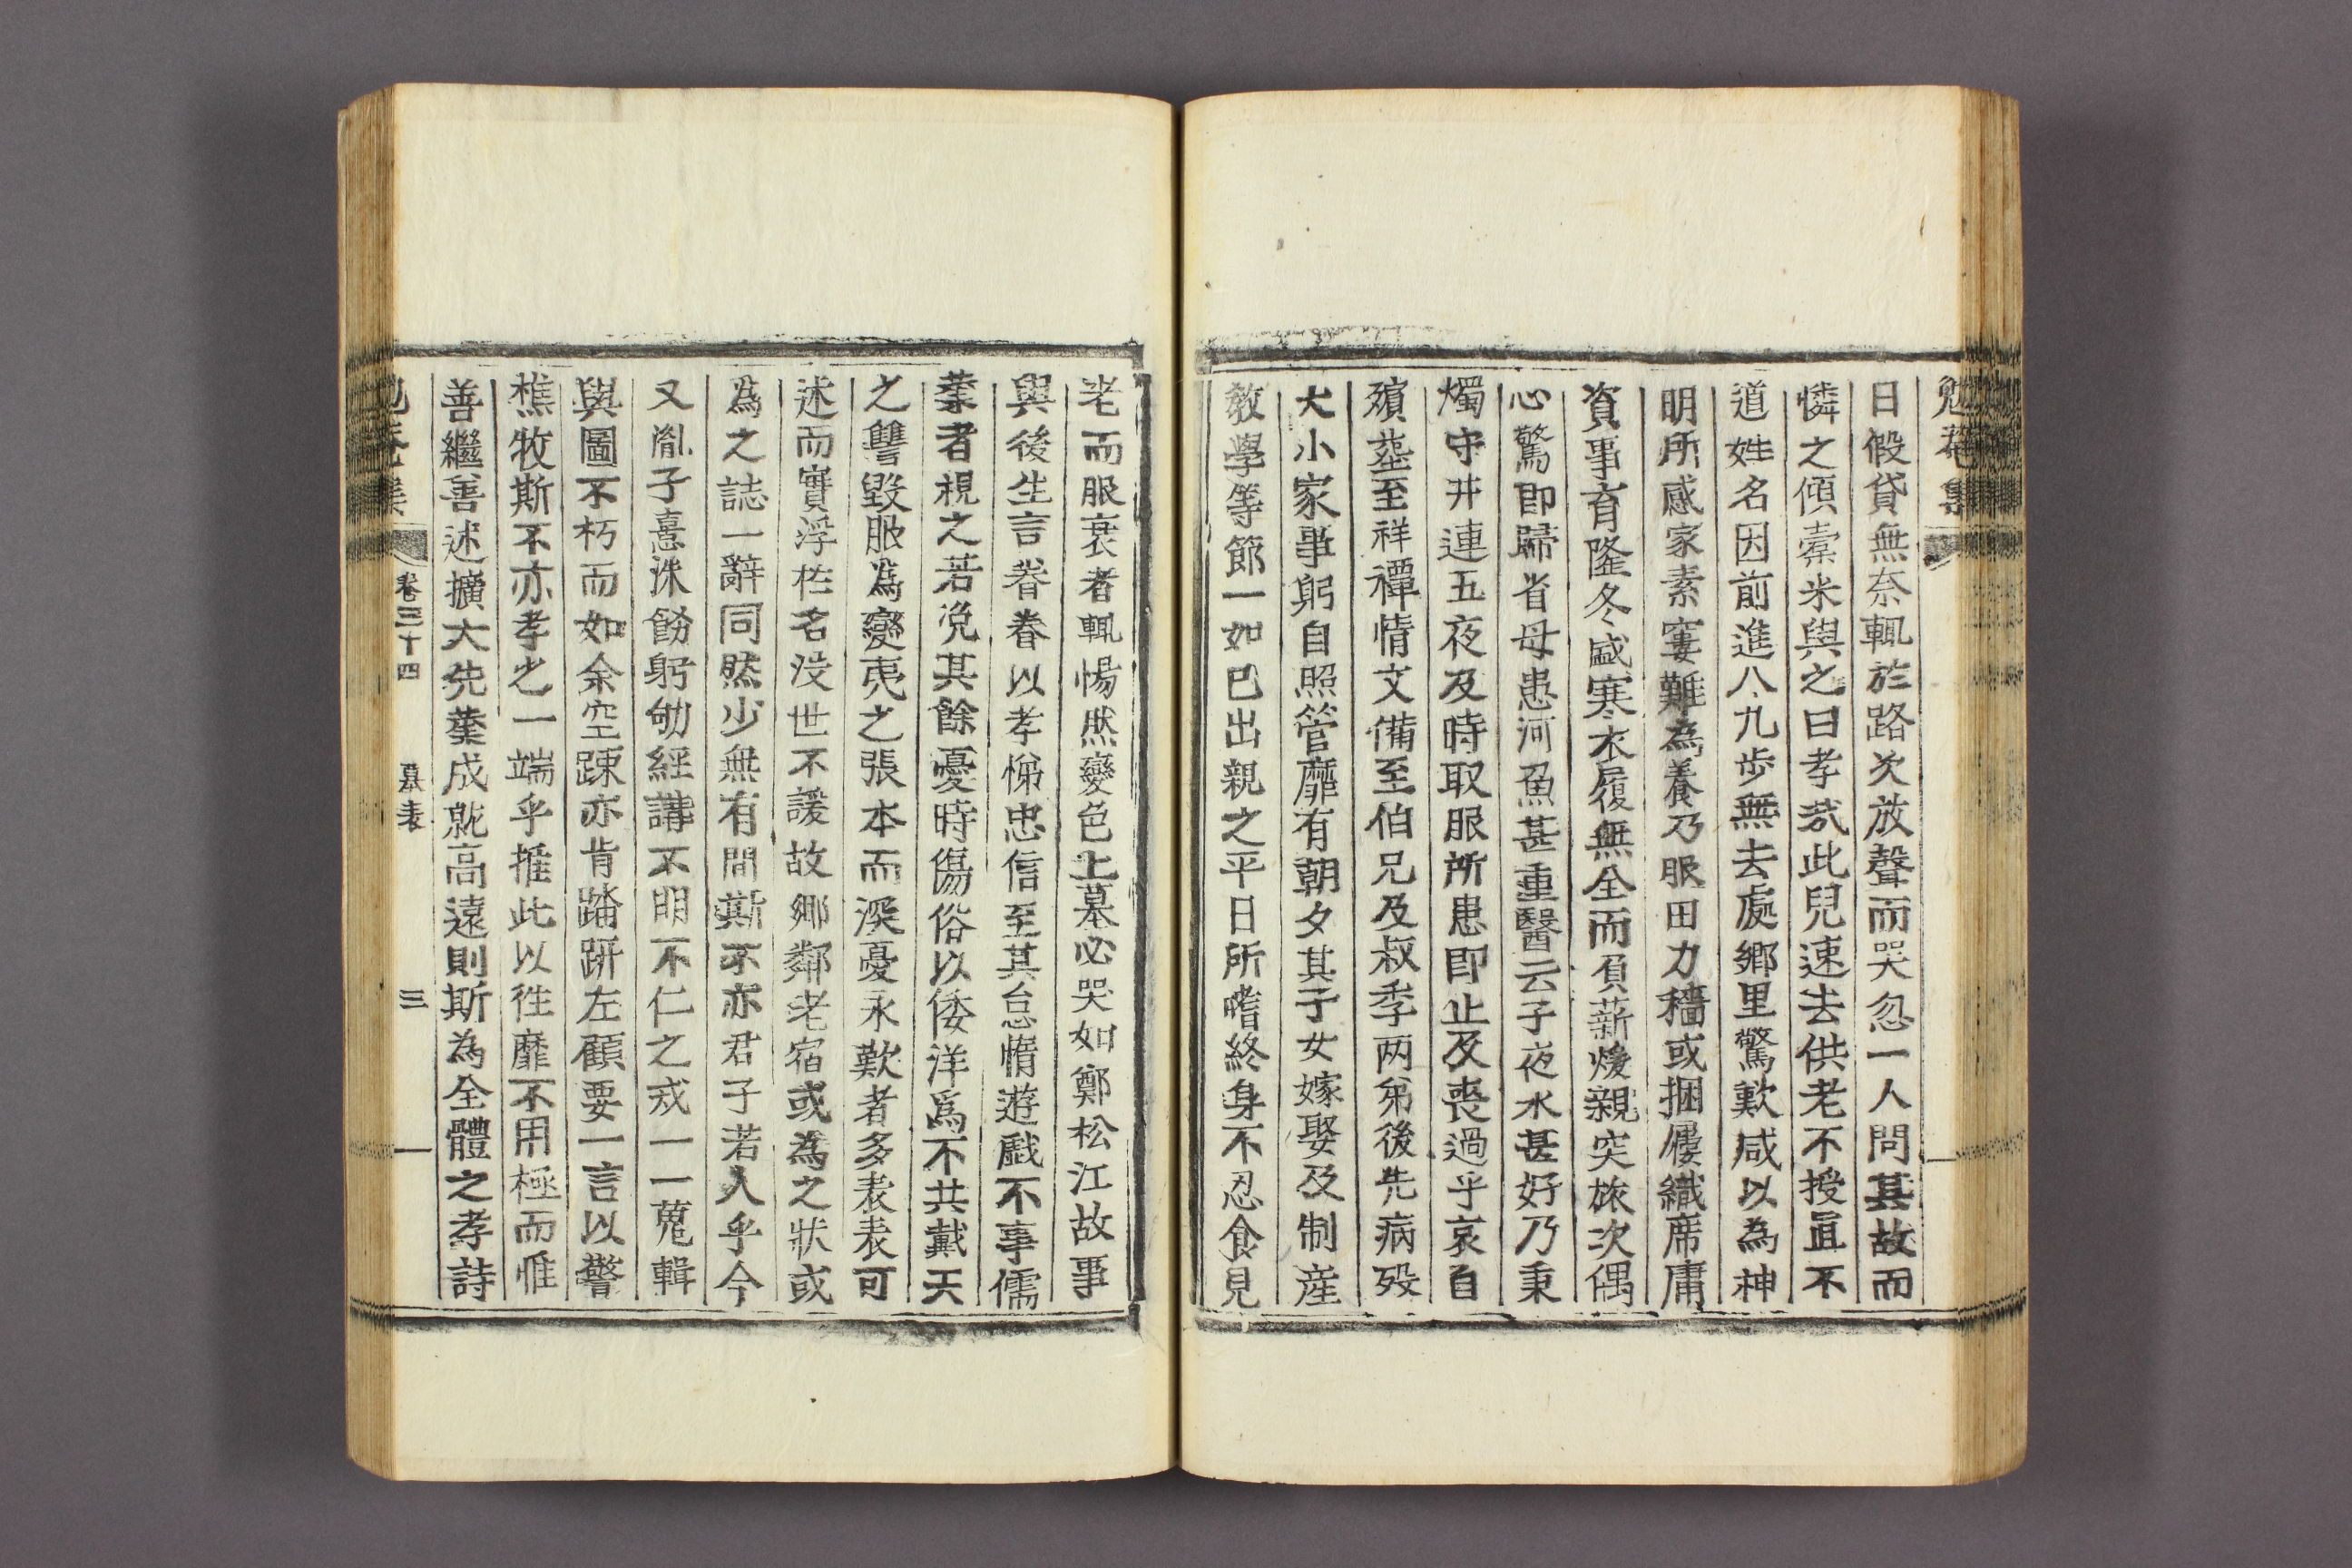 勉菴集
日假貸無奈輒於路次放聲而哭忽一人問其故而
憐之傾橐米與之曰孝哉此兒速去供老不授直不
道姓名因前進八九步無去處鄕里驚歎咸以為神
明所感家素窶難為養乃服田力穡或捆屨織席庸
資事育隆冬盛寒衣履無全而負薪煖親突旅次偶
心驚即歸省母患河魚甚重醫云子夜水甚好乃秉
燭守井連五夜及時取服所患即止及喪過乎哀自
殯葬至祥禫情文備至伯兄及叔季两弟後先病歿
大小家事躬自照管靡有朝夕其子女嫁娶及制産
敎學等節一如已出親之平日所嗜終身不忍食見
老而服衰者輒愓然變色上墓必哭如鄭松江故事
與後生言眷眷以孝悌忠信至其怠惰遊戱不事儒
業者視之若凂其餘憂時傷俗以倭洋爲不共戴天
之讐毀服為變夷之張本而深憂永歎者多表表可
述而實浮於名没世不諼故鄕鄰老宿或為之狀或
為之誌一辭同然少無有間斯不亦君子若人乎今
又胤子憙洙飭躬劬經講不明不仁之戒一一蒐輯
與圖不朽而如余空踈亦肯踏跰左顧要一言以警
樵牧斯不亦孝之一端乎推此以徃靡不用極而惟
善繼善述擴大先業成就高遠則斯為全體之孝詩
勉菴集 卷三十四 墓表 三